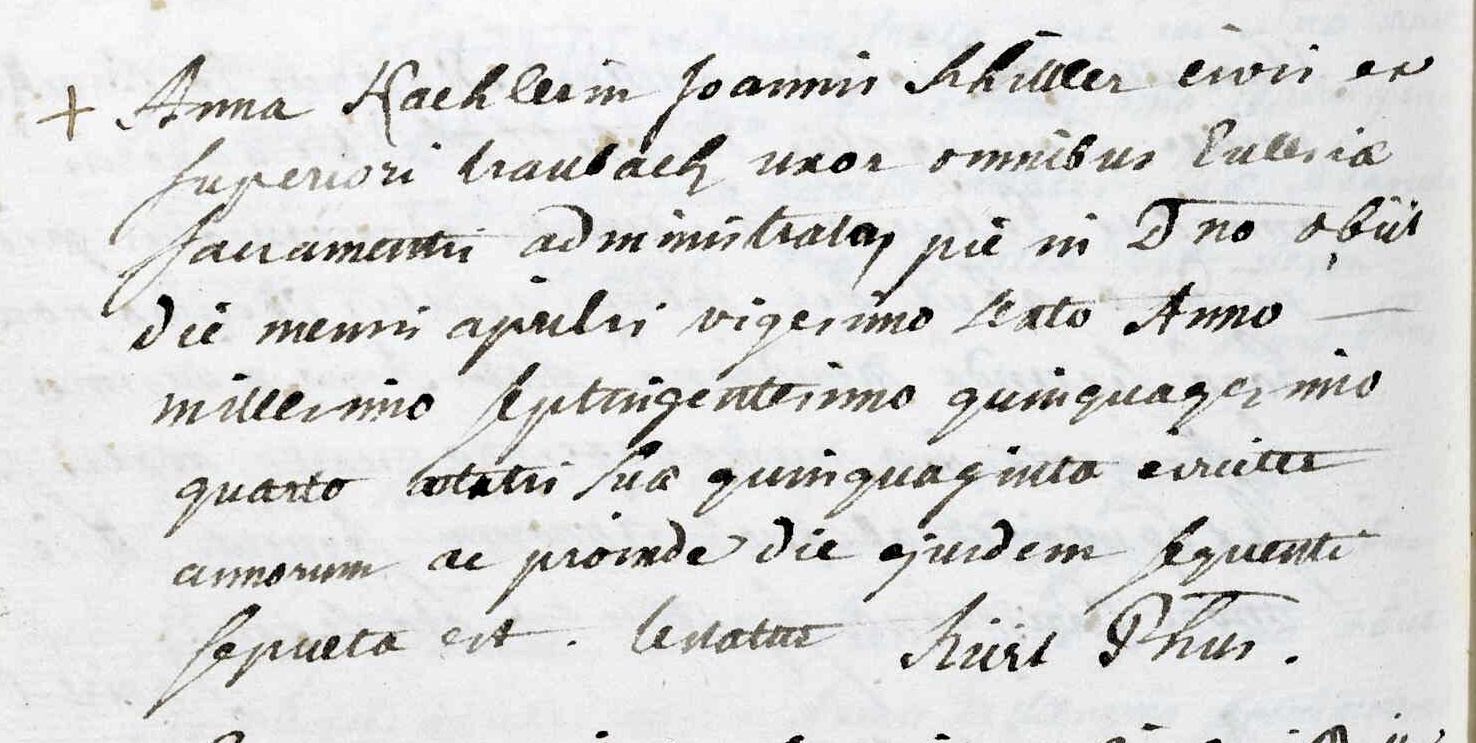 + Anna Kachlerin Joannis Schittler civis ex
superiori traubach uxor omnibus Eccllesiæ
sacramentis administrata, pie in Dno obiit
die mensis aprilis vigesimo sexto Anno
millesimo septingentesimo quinquagesimo
quarto ætatis suæ quinquaginta circiter
annorum ac proinde die ejusdem sequenti
sepulta est. testatur Phus.